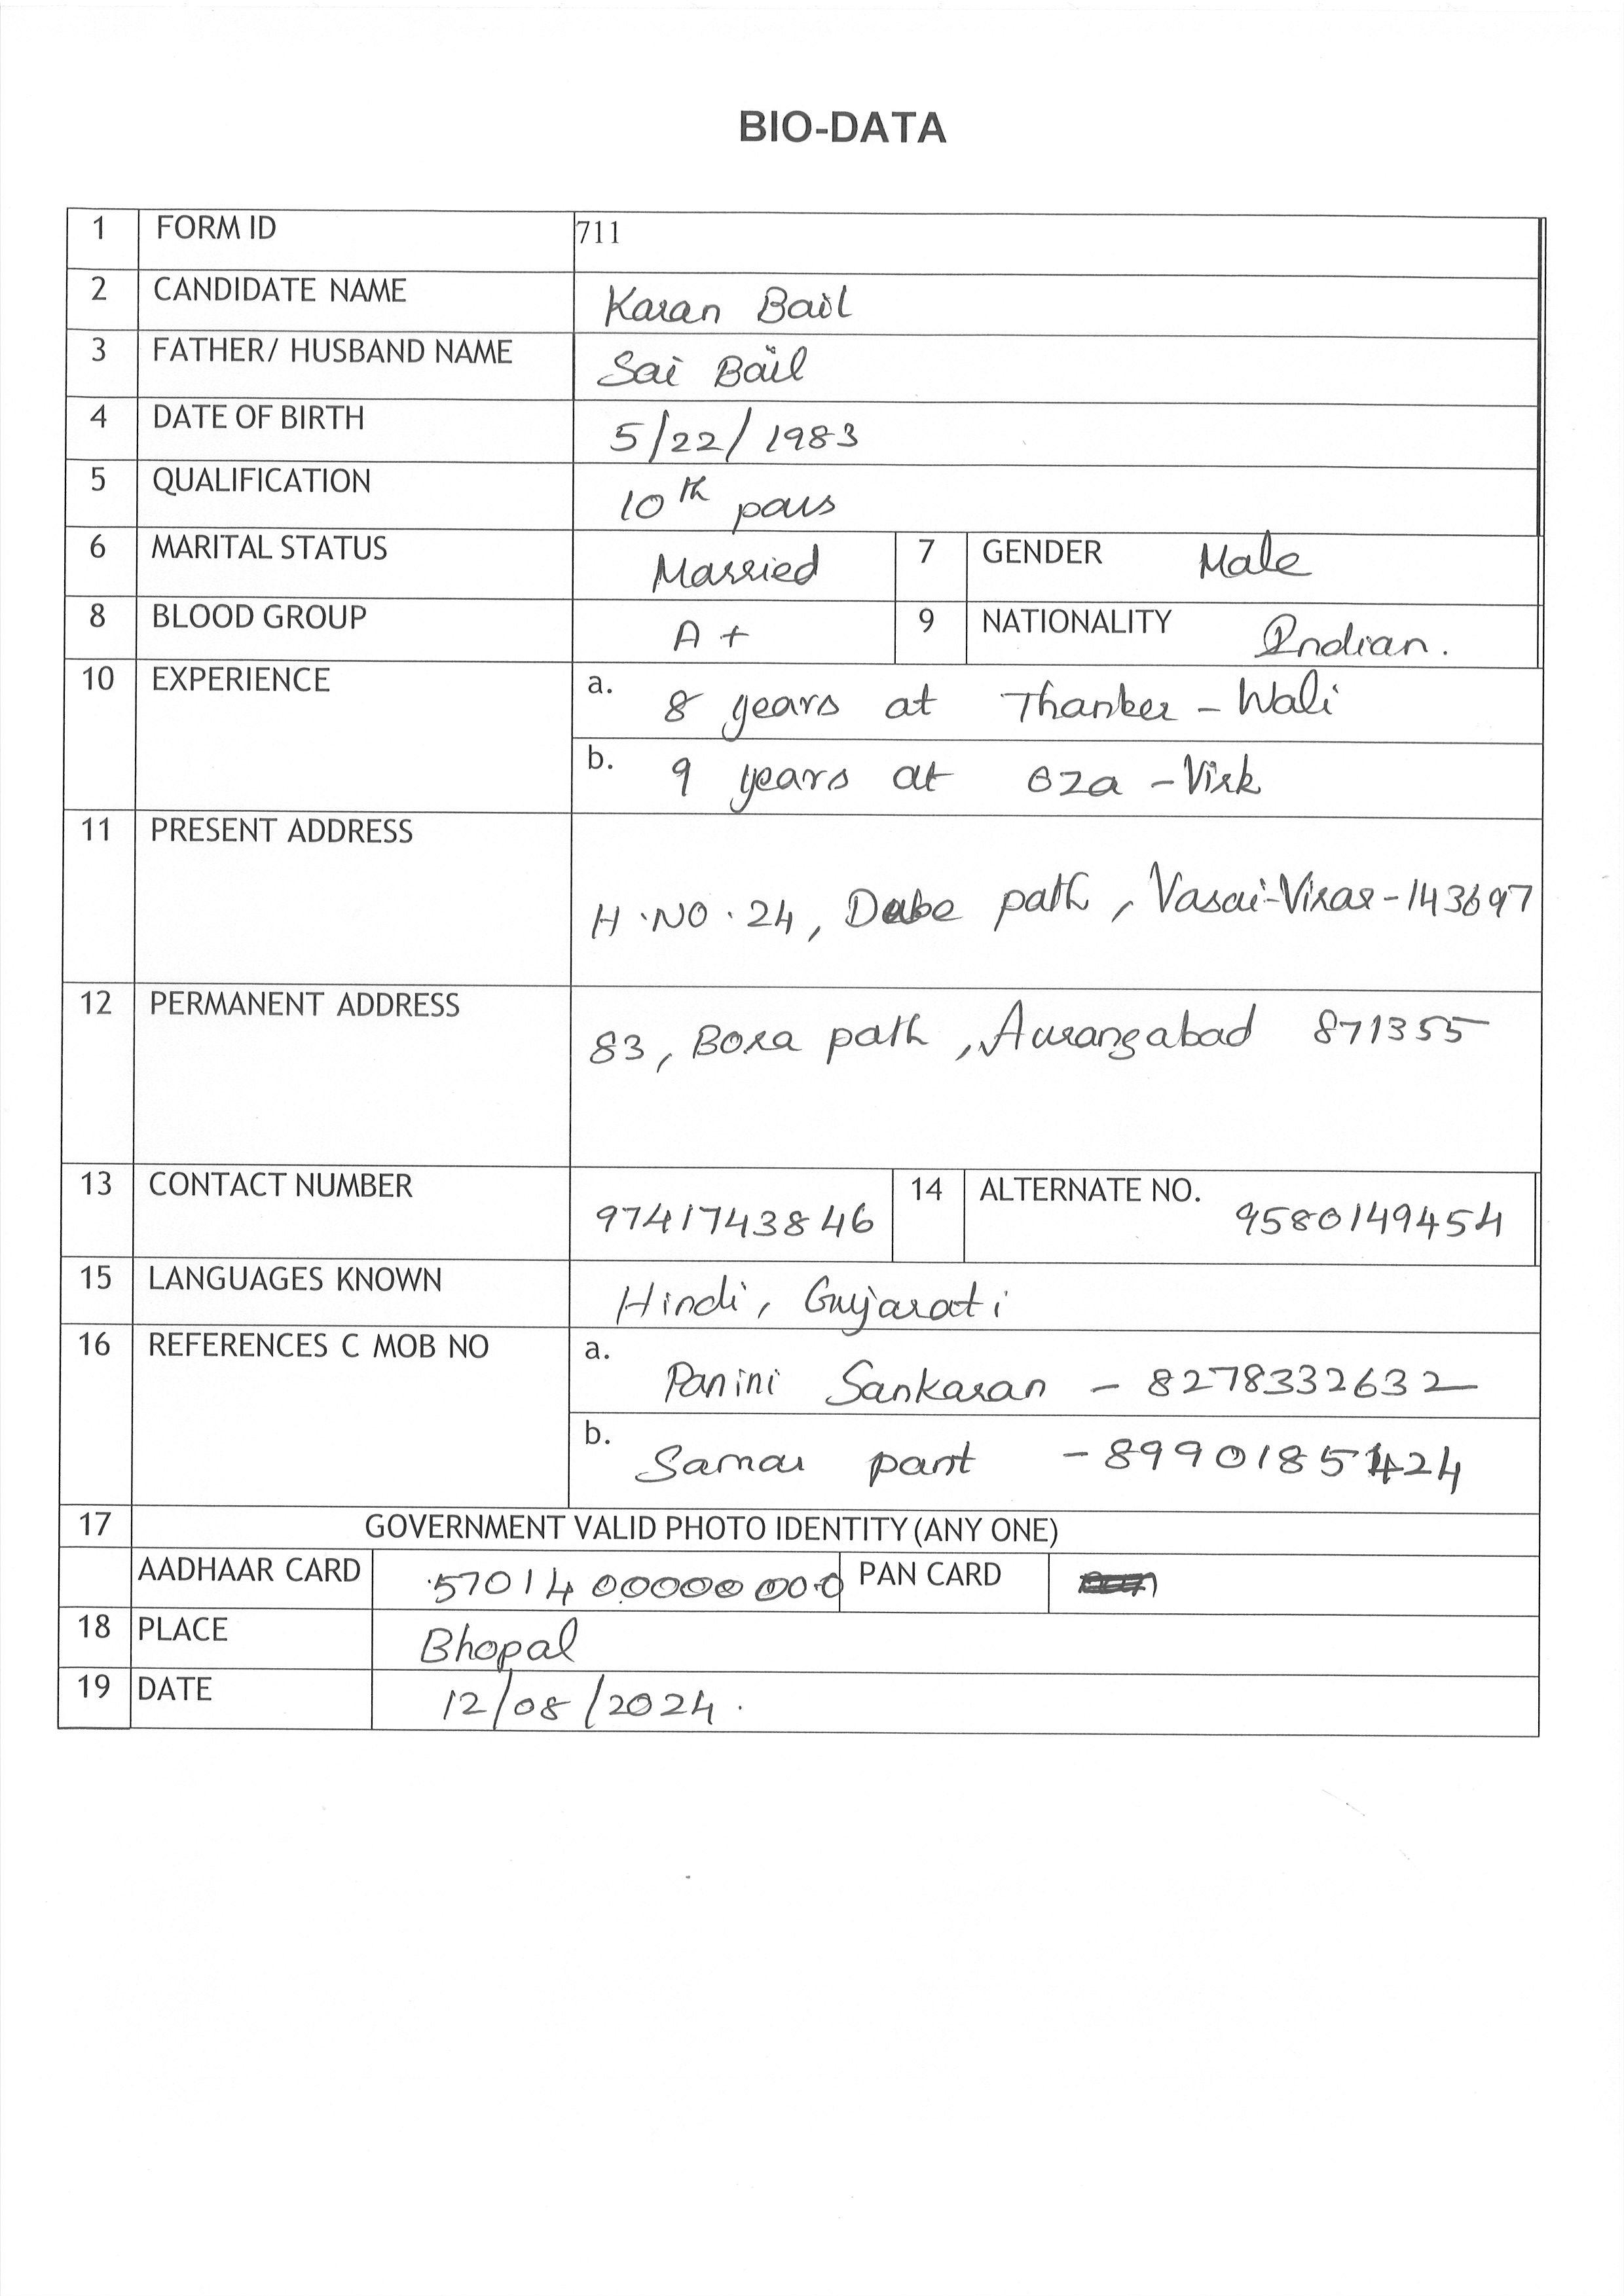 BIO-DATA
1 FORM ID 711
2 CANDIDATE NAME Karan Bail
3 FATHER/ HUSBAND NAME Sai Bail
4 DATE OF BIRTH 5/22/1983
5 QUALIFICATION 10th pass
6 MARITAL STATUS Married 7 GENDER Male
8 BLOOD GROUP A+ 9 NATIONALITY Indian.
10 EXPERIENCE a. 8 years at Thanker - Wali
b. 9 years at Oza - Virk
11 PRESENT ADDRESS
H.NO.24, Dube path, Vasai-Virar-143697
12 PERMANENT ADDRESS 83, Bora path, Aurangabad 871355
13 CONTACT NUMBER 9741743846 14 ALTERNATE NO. 9580149454
15 LANGUAGES KNOWN Hindi, Gujarati
16 REFERENCES C MOB NO a. Panini Sankaran - 8278332632
b. Samar pant - 8990185424
17 GOVERNMENT VALID PHOTO IDENTITY (ANY ONE)
AADHAAR CARD PAN CARD
18 PLACE Bhopal
19 DATE 12/08/2024.